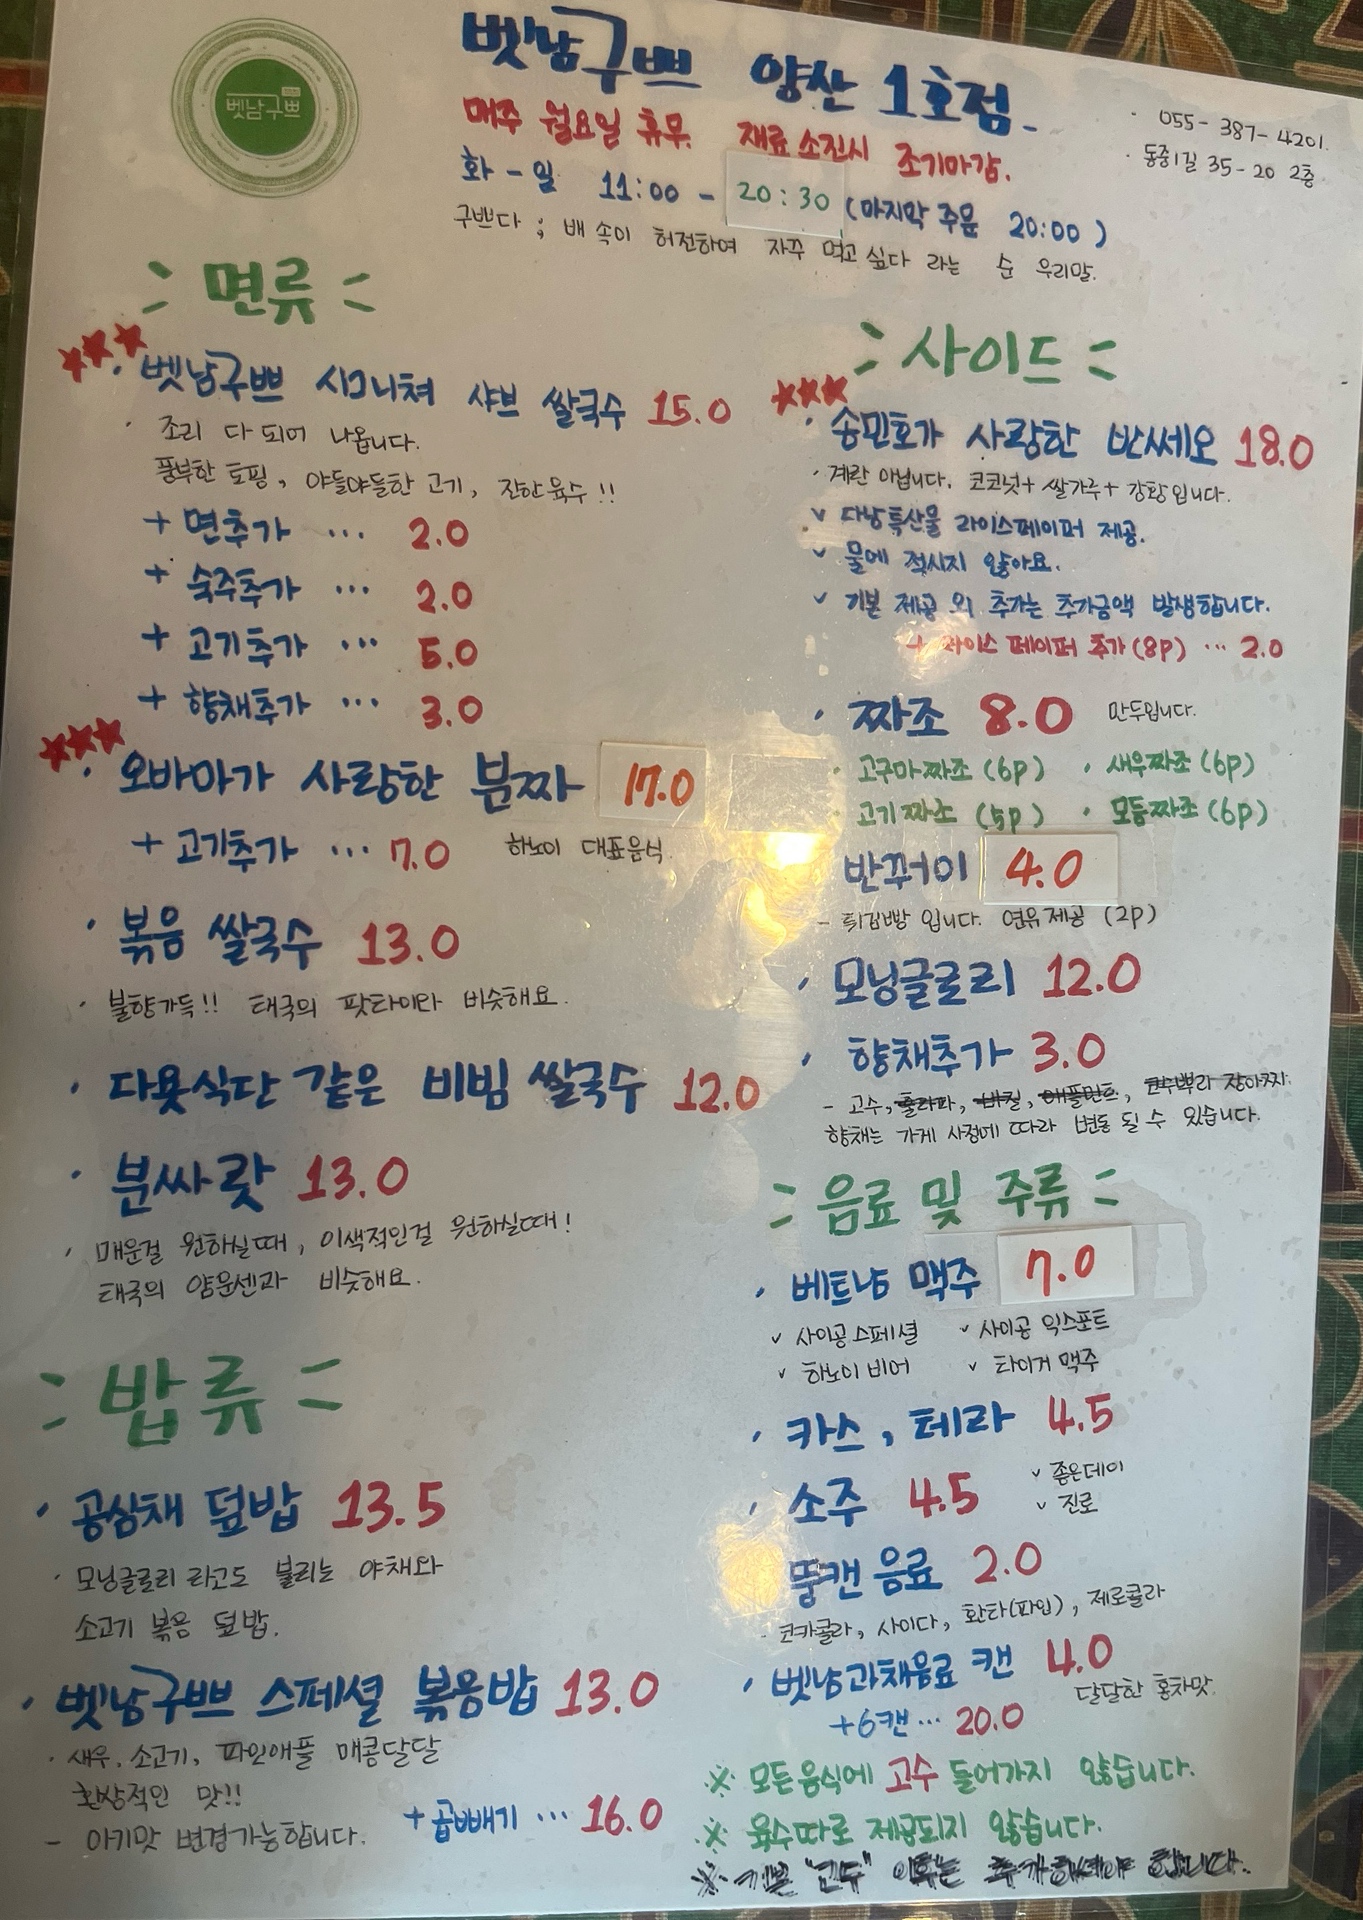 벳남구쁘
벳남구쁘 양산 1호점.
매주 월요일 휴무. 재료 소진시 조기마감.
· 055-387-4201.
· 동중1길 35-20 2층
화 - 일 11:00 - 20:30 (마지막 주문 20:00)
구쁘다 ; 배 속이 허전하여 자꾸 먹고 싶다 라는 순 우리말.
면류
· 벳남구쁘 시그니쳐 샤브 쌀국수 15.0
· 조리 다 되어 나옵니다.
풍부한 토핑, 야들야들한 고기, 진한육수!!
+ 면추가 ... 2.0
+ 숙주추가 ... 2.0
+ 고기추가 ... 5.0
+ 향채추가 ... 3.0
· 오바마가 사랑한 분짜 17.0
+ 고기추가 ... 7.0 하노이 대표음식.
· 볶음 쌀국수 13.0
· 불향가득!! 태국의 팟타이와 비슷해요.
· 다욧식단 같은 비빔 쌀국수 12.0
· 분싸랏 13.0
· 매운걸 원하실때, 이색적인걸 원하실때!
태국의 얌운센과 비슷해요.
밥류
· 공심채 덮밥 13.5
· 모닝글로리 라고도 불리는 야채와
소고기 볶음 덮밥.
· 벳남구쁘 스페셜 볶음밥 13.0
· 새우, 소고기, 파인애플 매콤달달
환상적인 맛!!
- 아기맛 변경가능합니다.
+ 곱빼기 ... 16.0
사이드
· 송민호가 사랑한 반쎄오 18.0
· 계란 아닙니다. 코코넛+쌀가루+강황입니다.
v 다낭특산물 라이스페이퍼 제공.
v 물에 적시지 않아요.
v 기본 제공 외 추가는 추가금액 발생합니다.
+ 라이스 페이퍼 추가(8p) ... 2.0
· 짜조 8.0 만두입니다.
· 고구마짜조 (6p) · 새우짜조 (6p)
· 고기짜조 (5p) · 모듬짜조 (6p)
반꾸어이 4.0
- 튀김빵 입니다. 연유제공 (2p)
· 모닝글로리 12.0
· 향채추가 3.0
- 고수, 홀라파, 바질, 애플민트, 고수뿌리 장아찌.
향채는 가게 사정에 따라 변동 될 수 있습니다.
음료 및 주류
· 베트남 맥주 7.0
v 사이공스페셜 v 사이공 익스포트
v 하노이 비어 v 타이거 맥주
· 카스, 테라 4.5
· 소주 4.5
v 좋은데이
v 진로
뚱캔 음료 2.0
· 코카콜라, 사이다, 환타(파인), 제로콜라
· 벳남과채음료 캔 4.0
달달한 홍차맛.
+6캔... 20.0
※ 모든음식에 고수 들어가지 않습니다.
※ 육수따로 제공되지 않습니다.